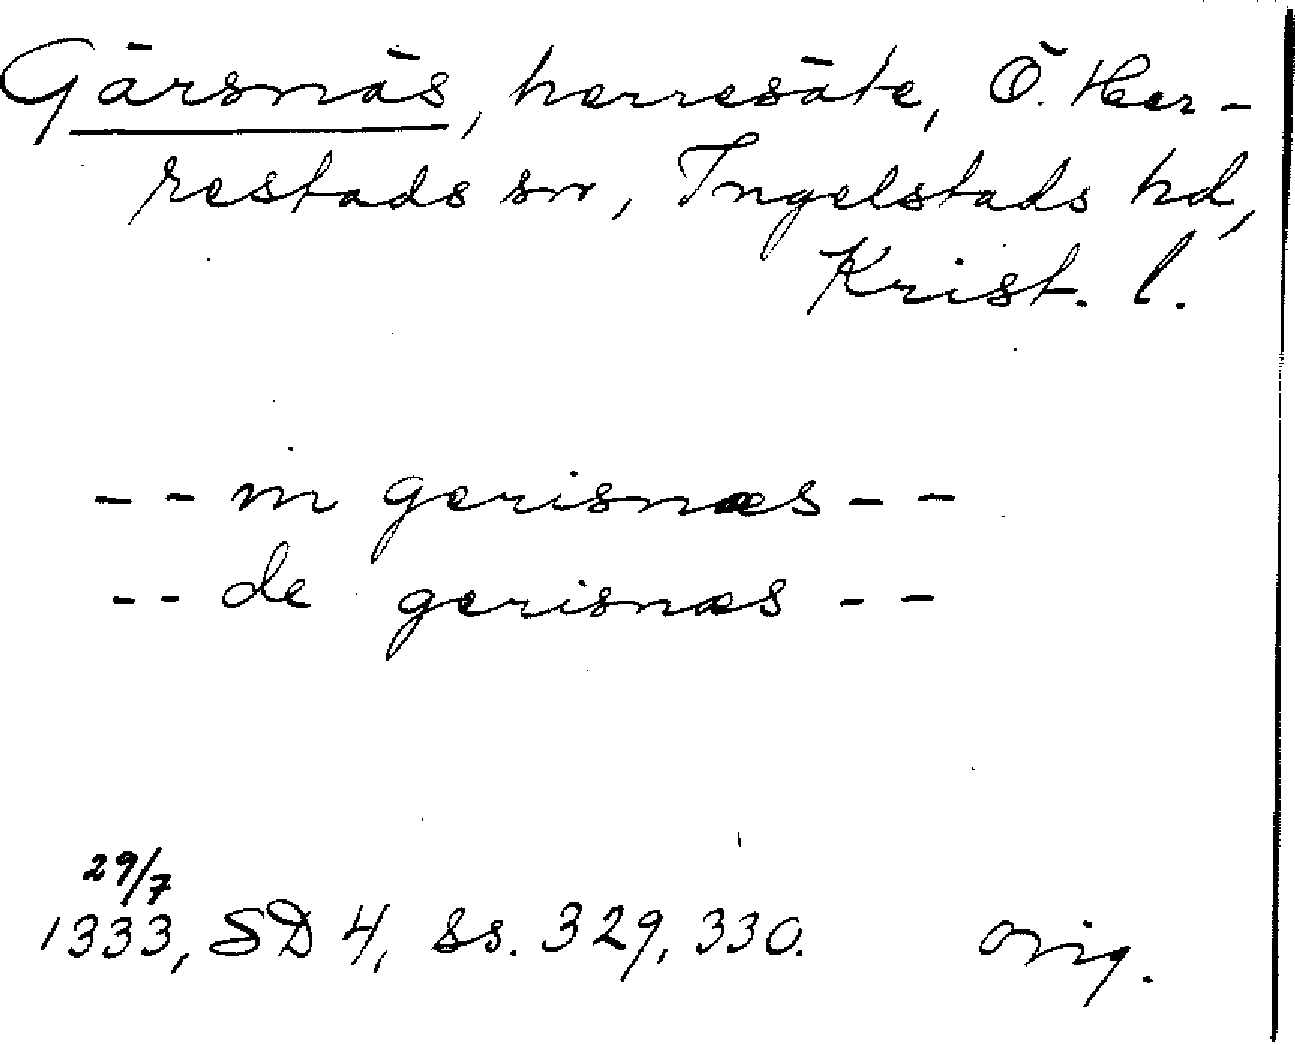 Gärsnäs, herresäte, Ö. Her-
restads sn, Ingelstads hd,
Krist. l.
-- in gerisnæs --
-- de gerisnæs --
29/7
1333, SD 4, ss. 329, 330. Orig.